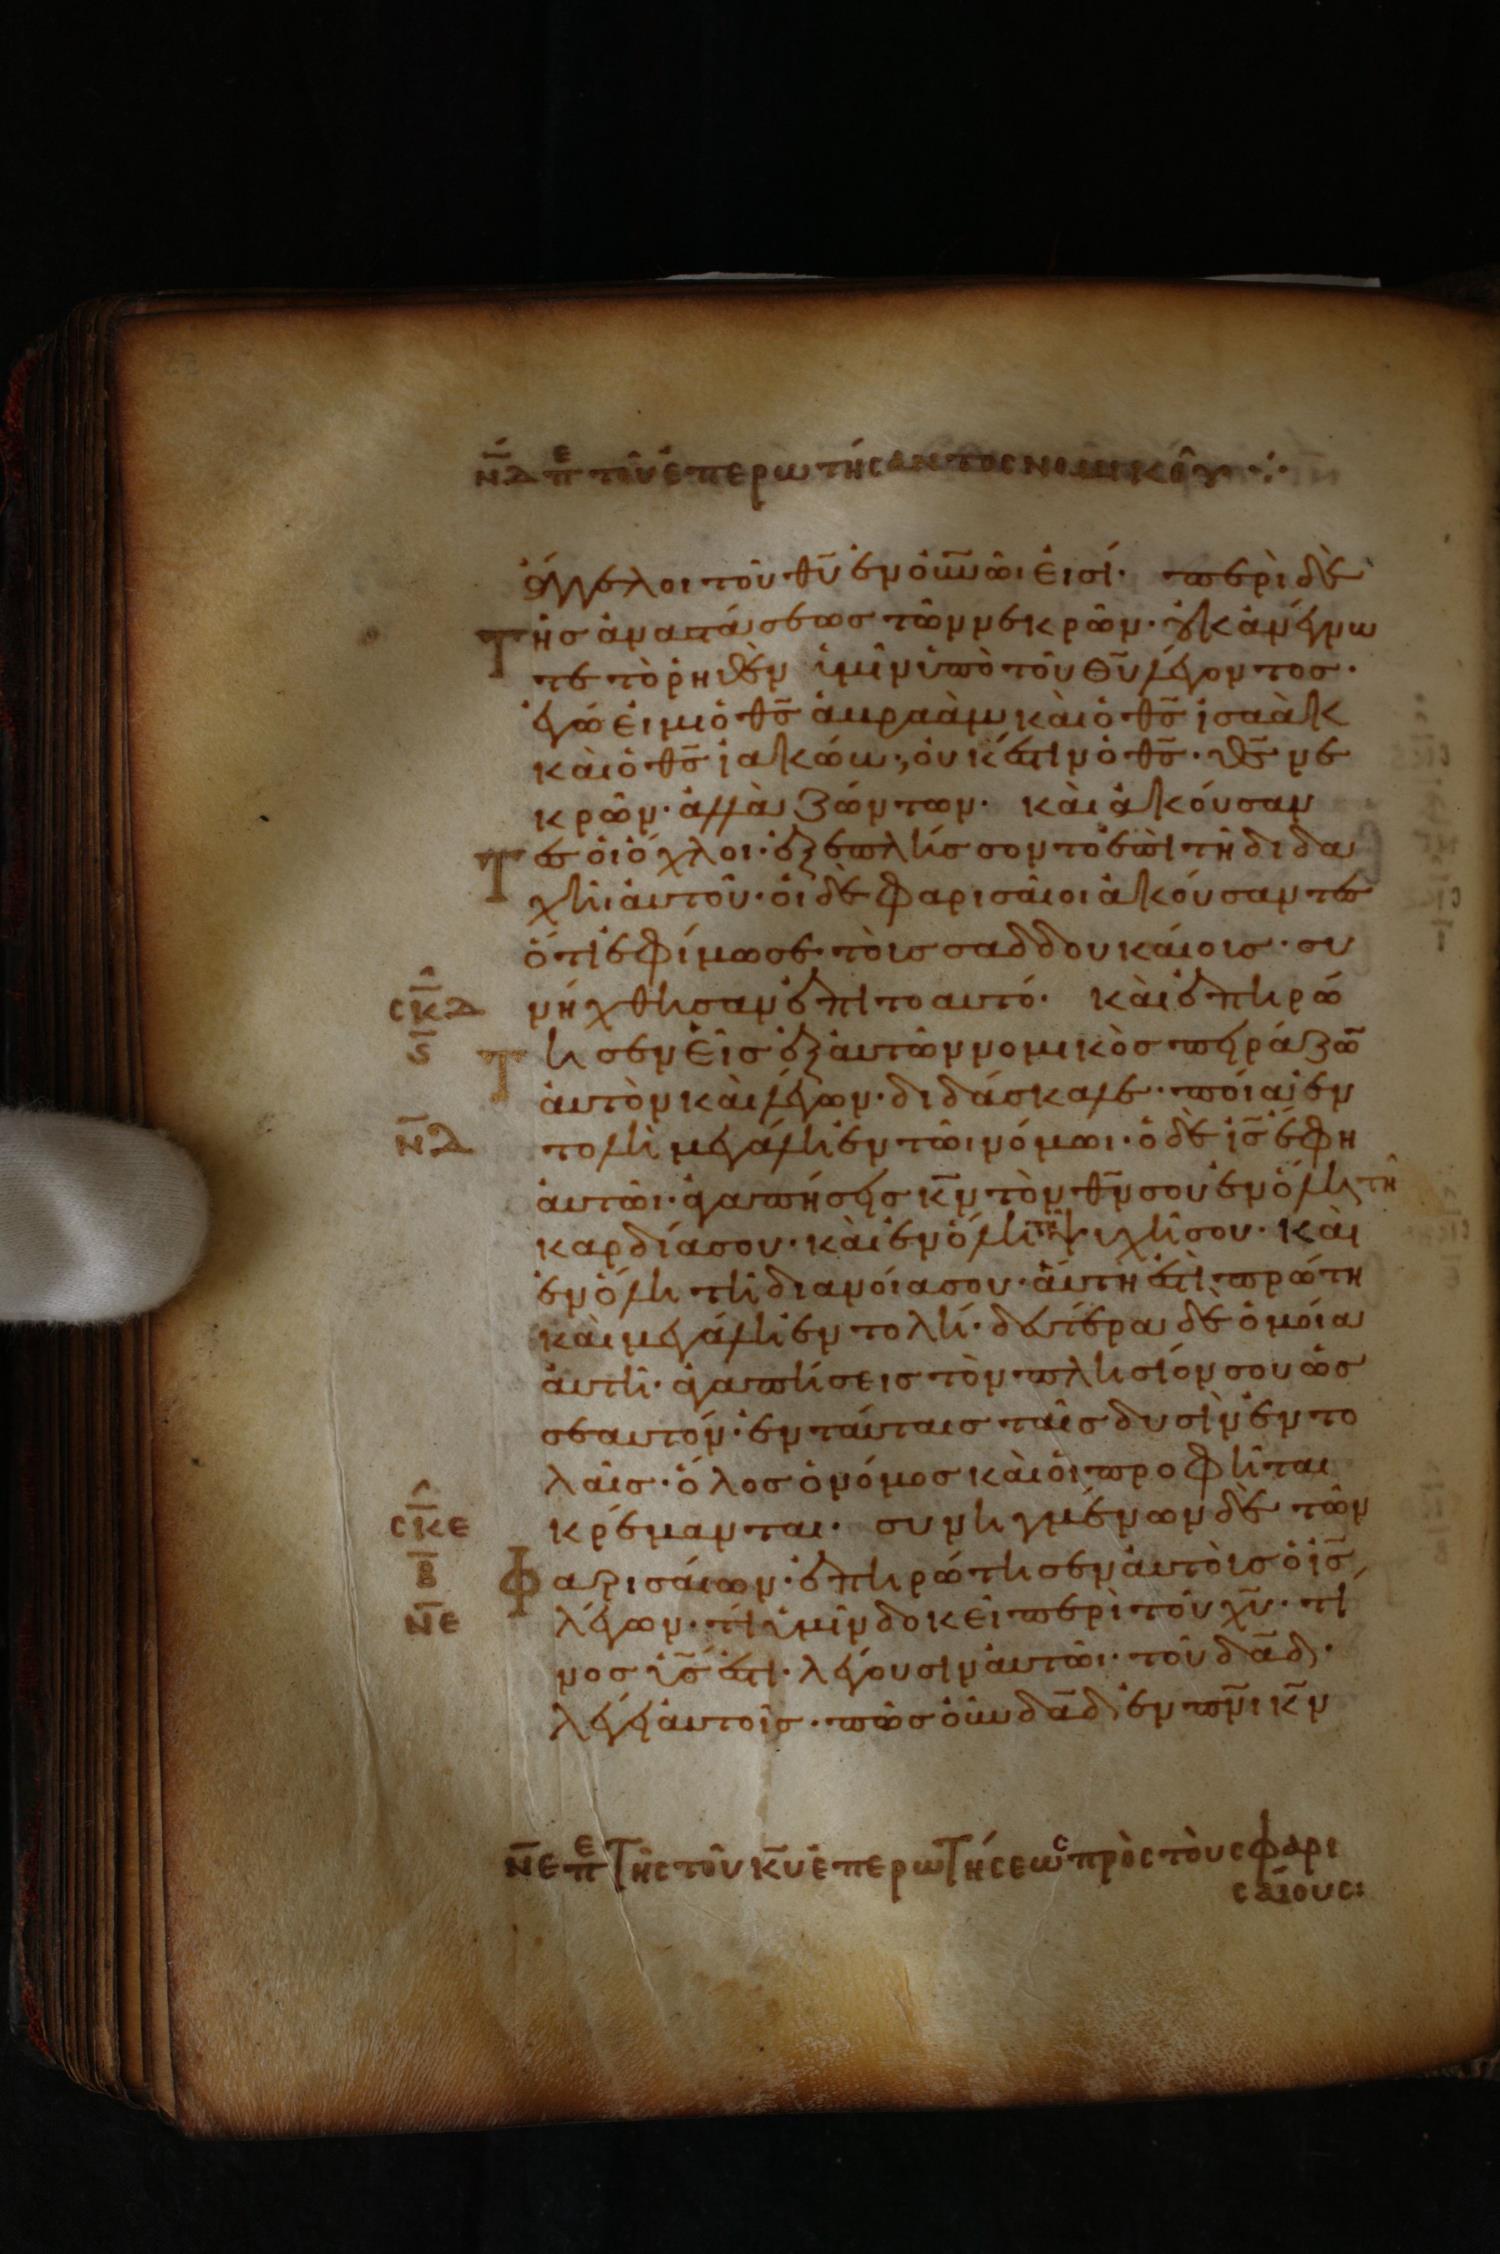 ΝΔ πε τοῦ ἐπερωτήσαντος νομικοῦ ⁘
ἄγγελοι τοῦ θ̅υ̅ ἐν ὀυ̅νῶι ἐισί· περὶ δὲ
Τῆσ ἀναστάσεωσ τῶν νεκρῶν· ὀυκ ἀνέγνω
τε τὸ ῥηθὲν ὑμῖν ὑπὸ τοῦ θ̅υ̅ λέγοντοσ·
ἐγώ ἐιμι ὁ θ̅σ̅ ἀβραὰμ καὶ ὁ θ̅σ̅ ἰσαὰκ
καὶ ὁ θ̅σ̅ ἰακώβ· ὀυκ ἔστιν ὁ θ̅σ̅· θ̅σ̅ νε
κρῶν· ἀλλὰ ζώντων· καὶ ἀκούσαν
Τεσ ὁι ὄχλοι· ἐξεπλήσσοντο ἐπὶ τῆ διδα
χῆι ἀυτοῦ· ὁι δὲ φαρισᾶιοι ἀκούσαντεσ
ὅτι ἐφίμωσε τοῖσ σαδδουκάιοισ· συ
CΚΔ νήχθησαν ἐπι το αυτό· καὶ ἐπηρώ
Ϛ Τησεν ἑῖσ ἐξ ἀυτῶν νομικὸσ πειράζω̅
ἀυτὸν καὶ λέγων· διδάσκαλε· ποία ἐν
ΝΔ τολὴ μεγάλη ἐν τῶι νόμωι· ὁ δὲ ι̅σ̅ ἔφη
ἀυτῶι· ἀγαπήσεισ κ̅ν̅ τὸν θ̅ν̅ σου ἐν ὅλη τῆ
καρδία σου· καὶ ἐν ὅλη τῆ ψυχῆ σου· καὶ
ἐν ὅλη τῆ διανοία σου· ἅυτη ἐστὶ πρώτη
καὶ μεγάλη ἐντολή· δευτέρα δὲ ὁμοία
ἀυτῆ· ἀγαπήσεισ τὸν πλησίον σου ὡσ
σεαυτόν· ἐν ταύταισ ταῖσ δυσὶν ἐντο
λαῖσ· ὅλοσ ὁ νόμοσ καὶ ὁι προφῆται
CΚΕ κρέμανται· συνηγμένων δὲ τῶν
Β Φαρισάιων· ἐπηρώτησεν ἀυτοὺσ ὁ ι̅σ̅
ΝΕ λέγων· τί ὑμῖν δοκεῖ περὶ τοῦ χ̅υ̅· τί
νοσ υ̅σ̅ ἐστι· λέγουσιν ἀυτῶι· τοῦ δ̅α̅δ̅·
λέγει ἀυτοῖσ· πῶσ ὀῦν δ̅α̅δ̅ ἐν π̅ν̅ι κ̅ν̅
ΝΕ πε τῆς τοῦ κ̅υ̅ ἐπερωτήσεως πρὸς τοὺς φαρι
σαίους: